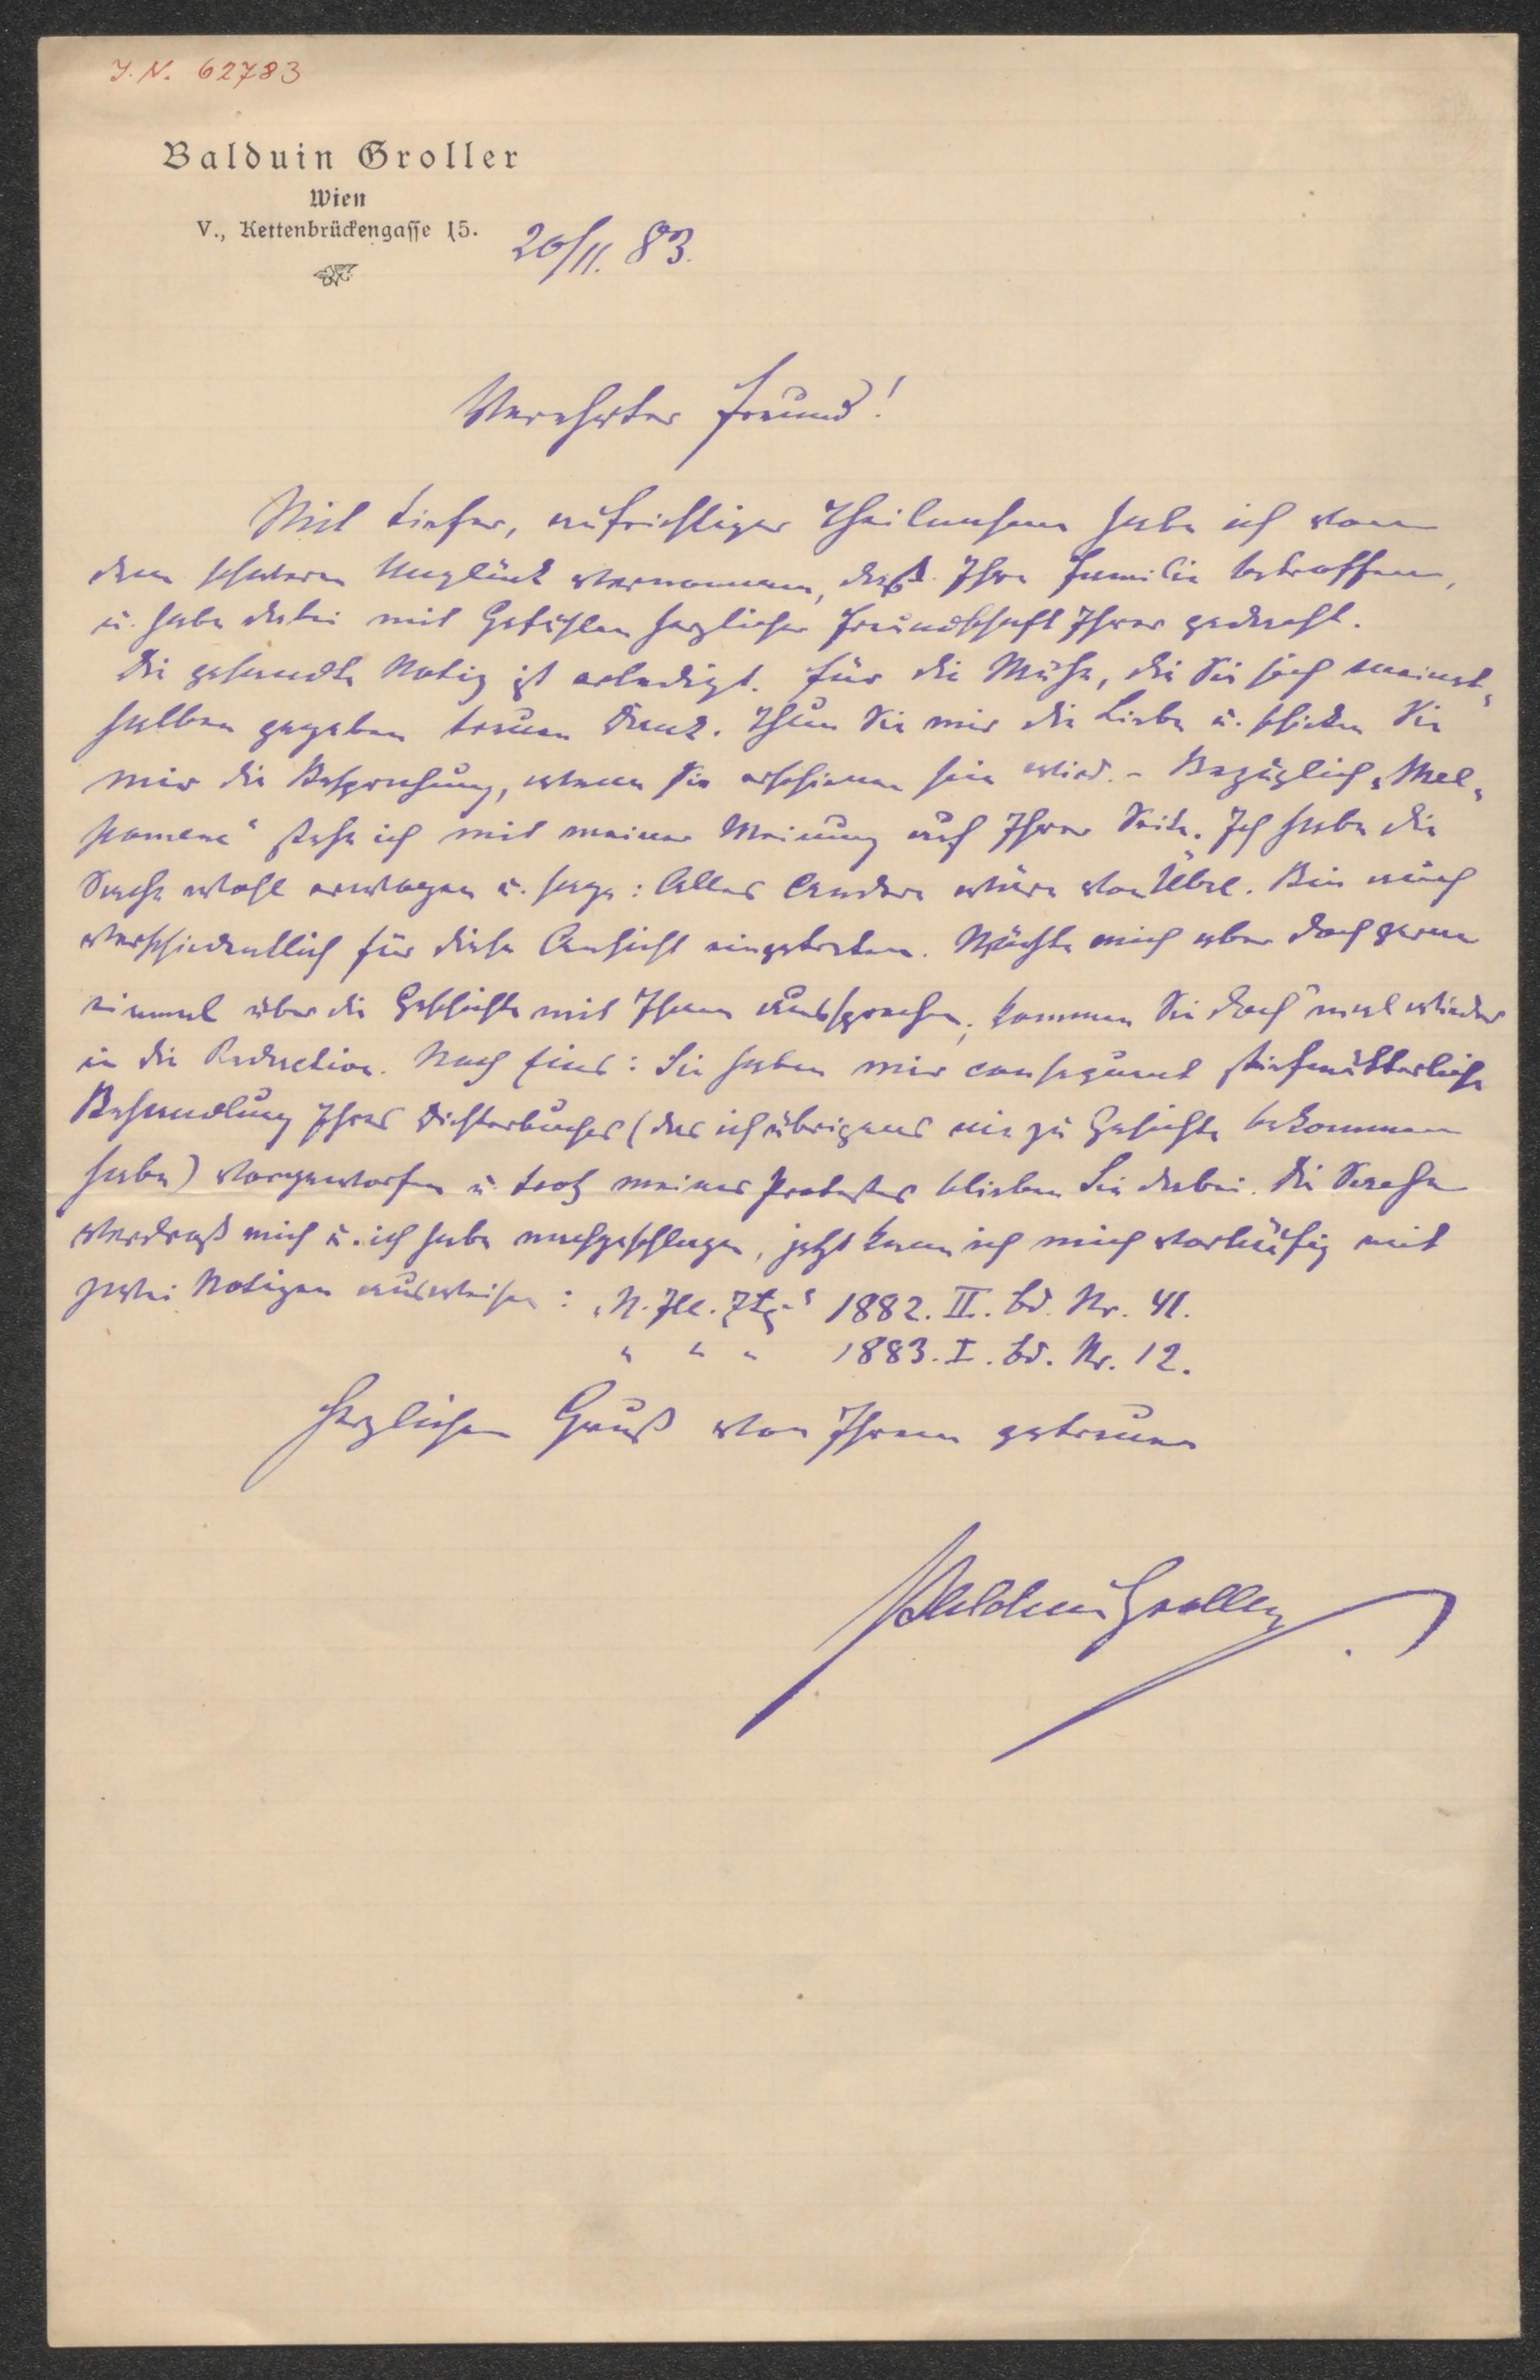 J. N. 62783
Balduin Groller
Wien
V., Kettenbrückengasse 15.
20/11. 83.
Verehrter Freund!
Mit tiefer, aufrichtiger Theilnahme habe ich von
dem schweren Unglück vernommen, daß Ihre Familie betroffen,
u. habe dabei mit Gefühlen herzlicher Freundschaft Ihrer gedacht.
Die gesandte Notiz ist erledigt. Für die Mühe, die Sie sich meinet-
halben gegeben treuen Dank. Thun Sie mir die Liebe u. schicken Sie
mir die Besprechung, wenn sie erschienen sein wird. - Bezüglich „Mel-
pomene“ stehe ich mit meiner Meinung auf Ihrer Seite. Ich habe die
Sache wohl erwogen u. sage: Alles Andere wäre von Übel. Bin auch
verschiedentlich für diese Ansicht eingetreten. Möchte mich aber doch gerne
einmal über die Geschichte mit Ihnen aussprechen, kommen Sie doch mal wieder
in die Redaction. Noch Eins: Sie haben mir consequent stiefmütterliche
Behandlung Ihres Dichterbuches (das ich übrigens nie zu Gesichte bekommen
habe) vorgeworfen u. trotz meines Protestes blieben Sie dabei. Die Sache
verdroß mich u. ich habe nachgeschlagen, jetzt kann ich mich vorläufig mit
zwei Notizen ausweisen: „N. Ill. Ztg.“ 1882. II. Bd. Nr. 41.
" " " 1883. I. Bd. Nr. 12.
Herzlichen Gruß von Ihrem getreuen
Balduin Groller